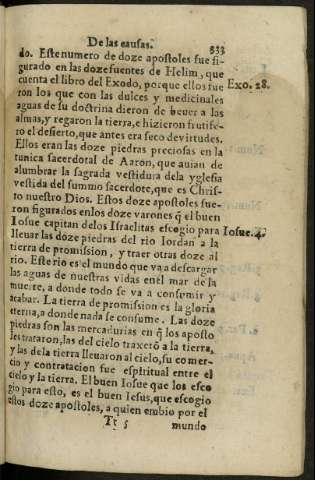 De las causas.
333
do. Este numero de doze apostoles fue fi-
gurado en las doze fuentes de Helim, que
cuenta el libro del Exodo, porque ellos fue
Exo. 28.
ron los que con las dulces y medicinales
aguas de su doctrina dieron de beuer a las
almas, y regaron la tierra, e hizieron frutife-
ro el desierto, que antes era seco de virtudes.
Ellos eran las doze piedras preciosas en la
tunica sacerdotal de Aaron, que auian de
alumbrar la sagrada vestidura dela yglesia
vestida del summo sacerdote, que es Chris-
to nuestro Dios. Estos doze apostoles fue-
ron figurados enlos doze varones q̃ el buen
Iosue capitan delos Israelitas escogio para
Iosue. 4.
lleuar las doze piedras del rio Iordan a la
tierra de promission, y traer otras doze al
rio. Este rio es el mundo que va a descargar
las aguas de nuestras vidas enel mar de la
muerte, a donde todo se va a consumir y
acabar. La tierra de promission es la gloria
eterna, a donde nada se consume. Las doze
piedras son las mercadurias en q̃ los aposto
les trataron, las del cielo traxerõ a la tierra,
y las dela tierra lleuaron al cielo, su comer-
cio y contratacion fue espiritual entre el
cielo y la tierra. El buen Iosue que los esco
gio para esto, es el buen Iesus, que escogio
estos doze apostoles, a quien embio por el
Tt 5
mundo